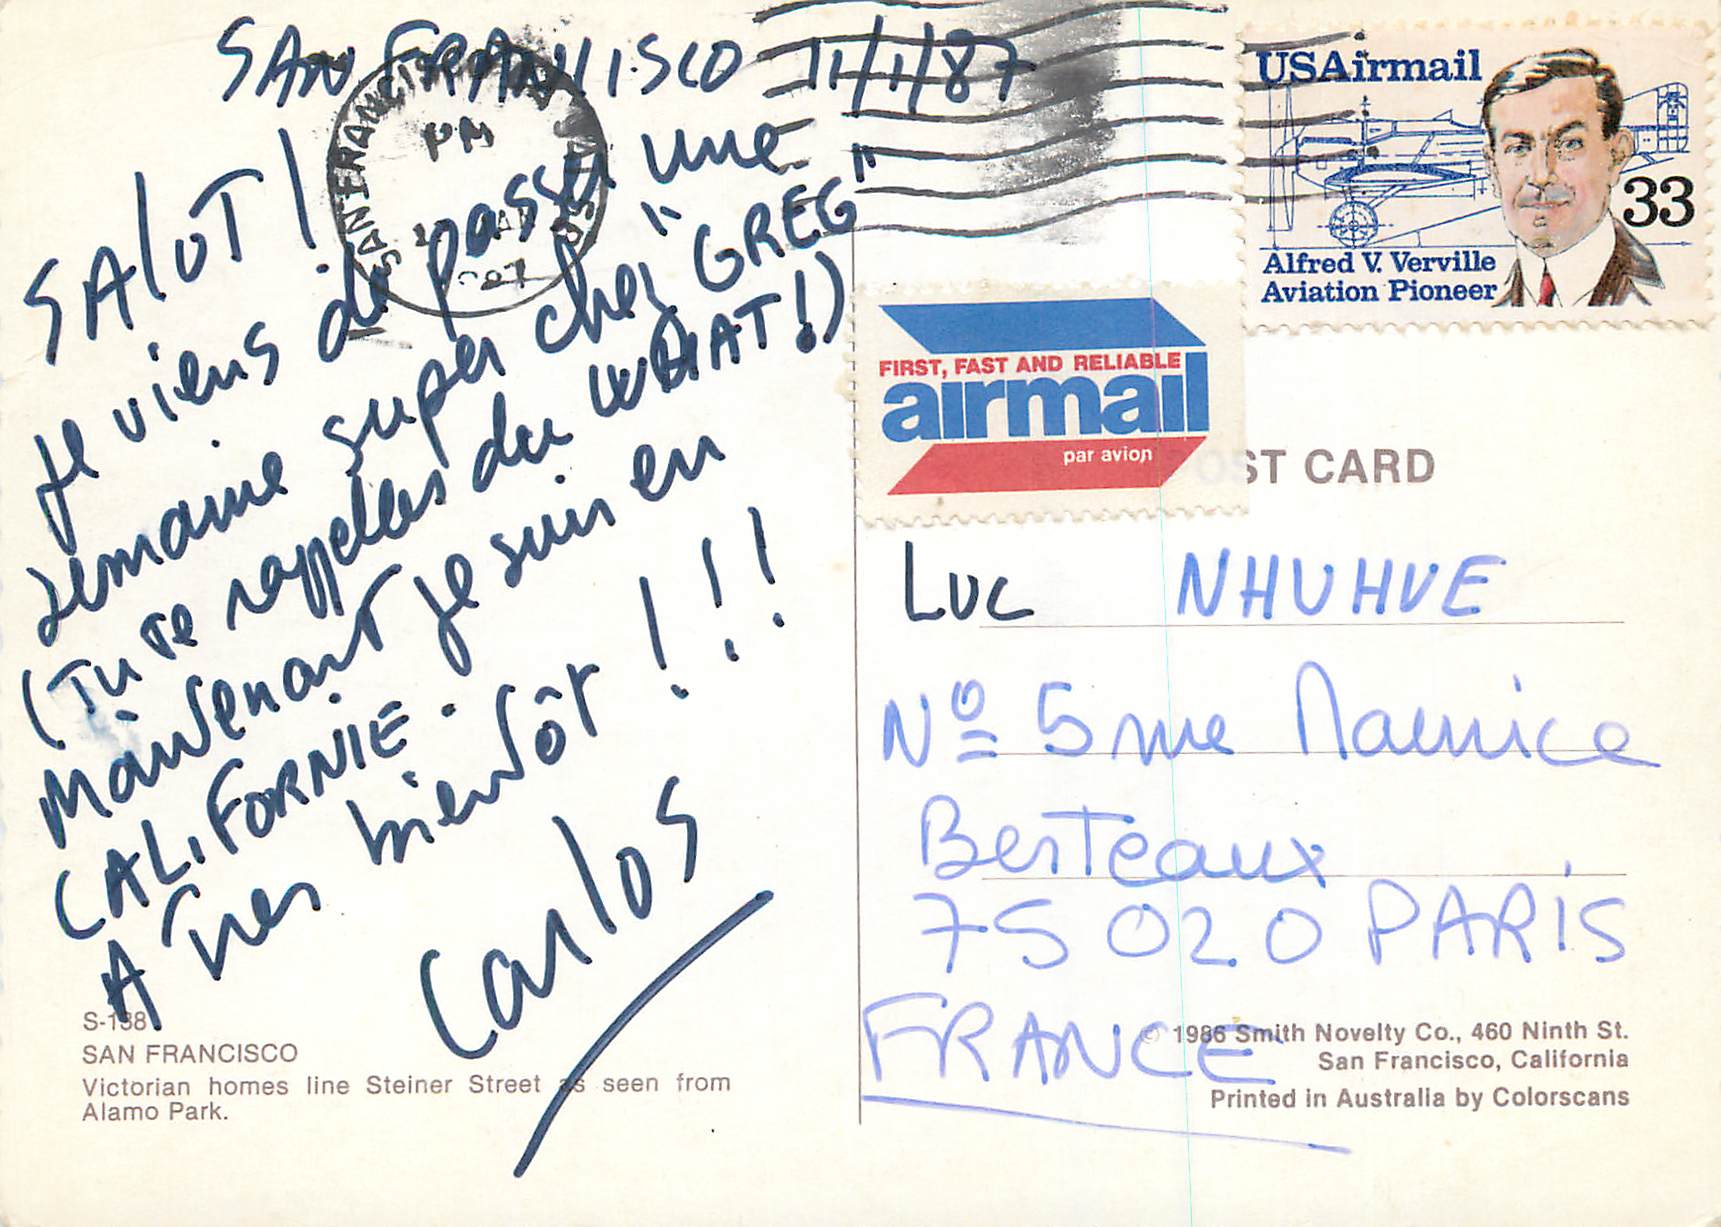 SAN FRANCISCO 11/1/87
SALUT !
Je viens de passer une
semaine super chez "GREG"
(Tu te rappelles du WHAT!)
Maintenant je suis en
CALIFORNIE.
A Tres bientôt !!!
Carlos
S-138
SAN FRANCISCO
Victorian homes line Steiner Street as seen from
Alamo Park.
SAN FRANCISCO
PM
1987
USAirmail
33
Alfred V. Verville
Aviation Pioneer
FIRST, FAST AND RELIABLE
airmail
par avion
POST CARD
LUC NHUHUE
Nº 5 rue Maurice
Berteaux
75020 PARIS
FRANCE
© 1986 Smith Novelty Co., 460 Ninth St.
San Francisco, California
Printed in Australia by Colorscans